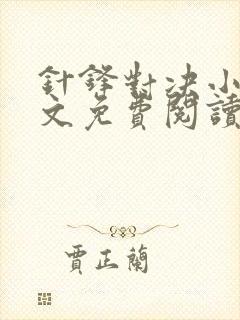 針鋒對決小
文免費閱讀
賈正蘭